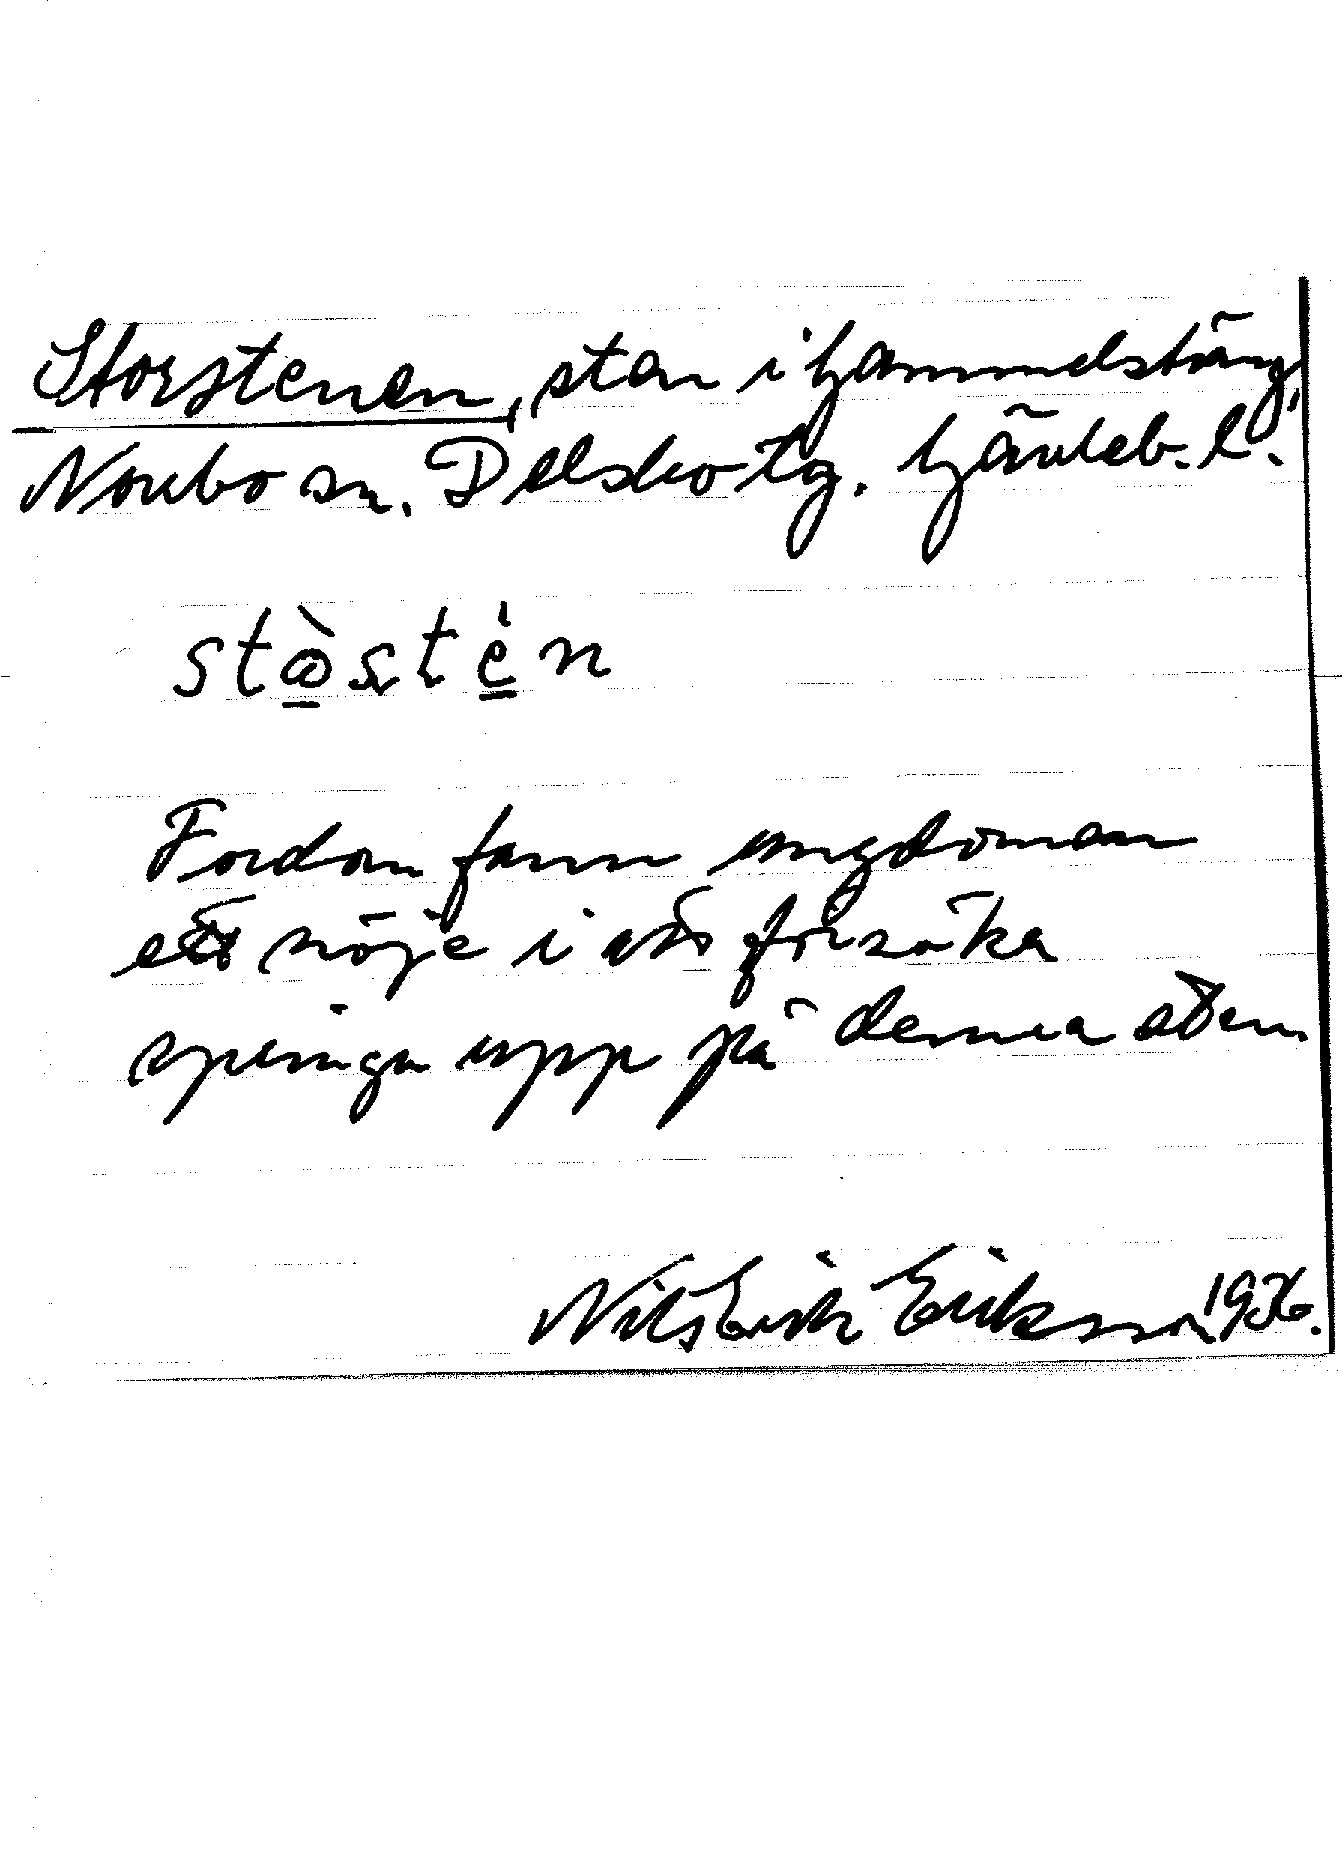 Storstenen, sten i Gammelsträng,
Norrbo sn. Delsbo tg. Gävleb. l.
stòstén
Fordom fann ungdomen
ett nöje i att försöka
springa upp på denna sten.
Nils Erik Eriksson 1936.